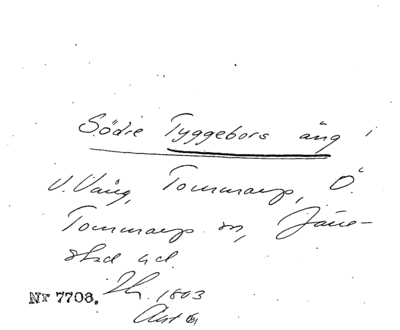 Södre Tyggebors äng i
V. Vång, Tommarp, Ö.
Tommarp sn, Järre-
stad hd.
Nr 7708. 1803
Akt 6